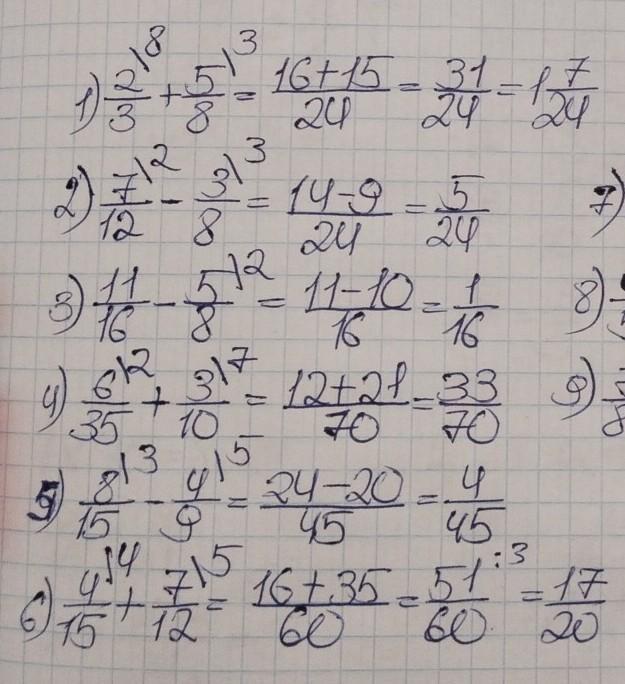 1) 2/3\8 + 5/8\3 = 16+15/24 = 31/24 = 1 7/24
2) 7/12\2 - 3/8\3 = 14-9/24 = 5/24
7)
3) 11/16 - 5/8\2 = 11-10/16 = 1/16
8)
4) 6/35\2 + 3/10\7 = 12+21/70 = 33/70
9)
5) 8/15\3 - 4/9\5 = 24-20/45 = 4/45
6) 4/15\4 + 7/12\5 = 16+35/60 = 51/60 :3 = 17/20